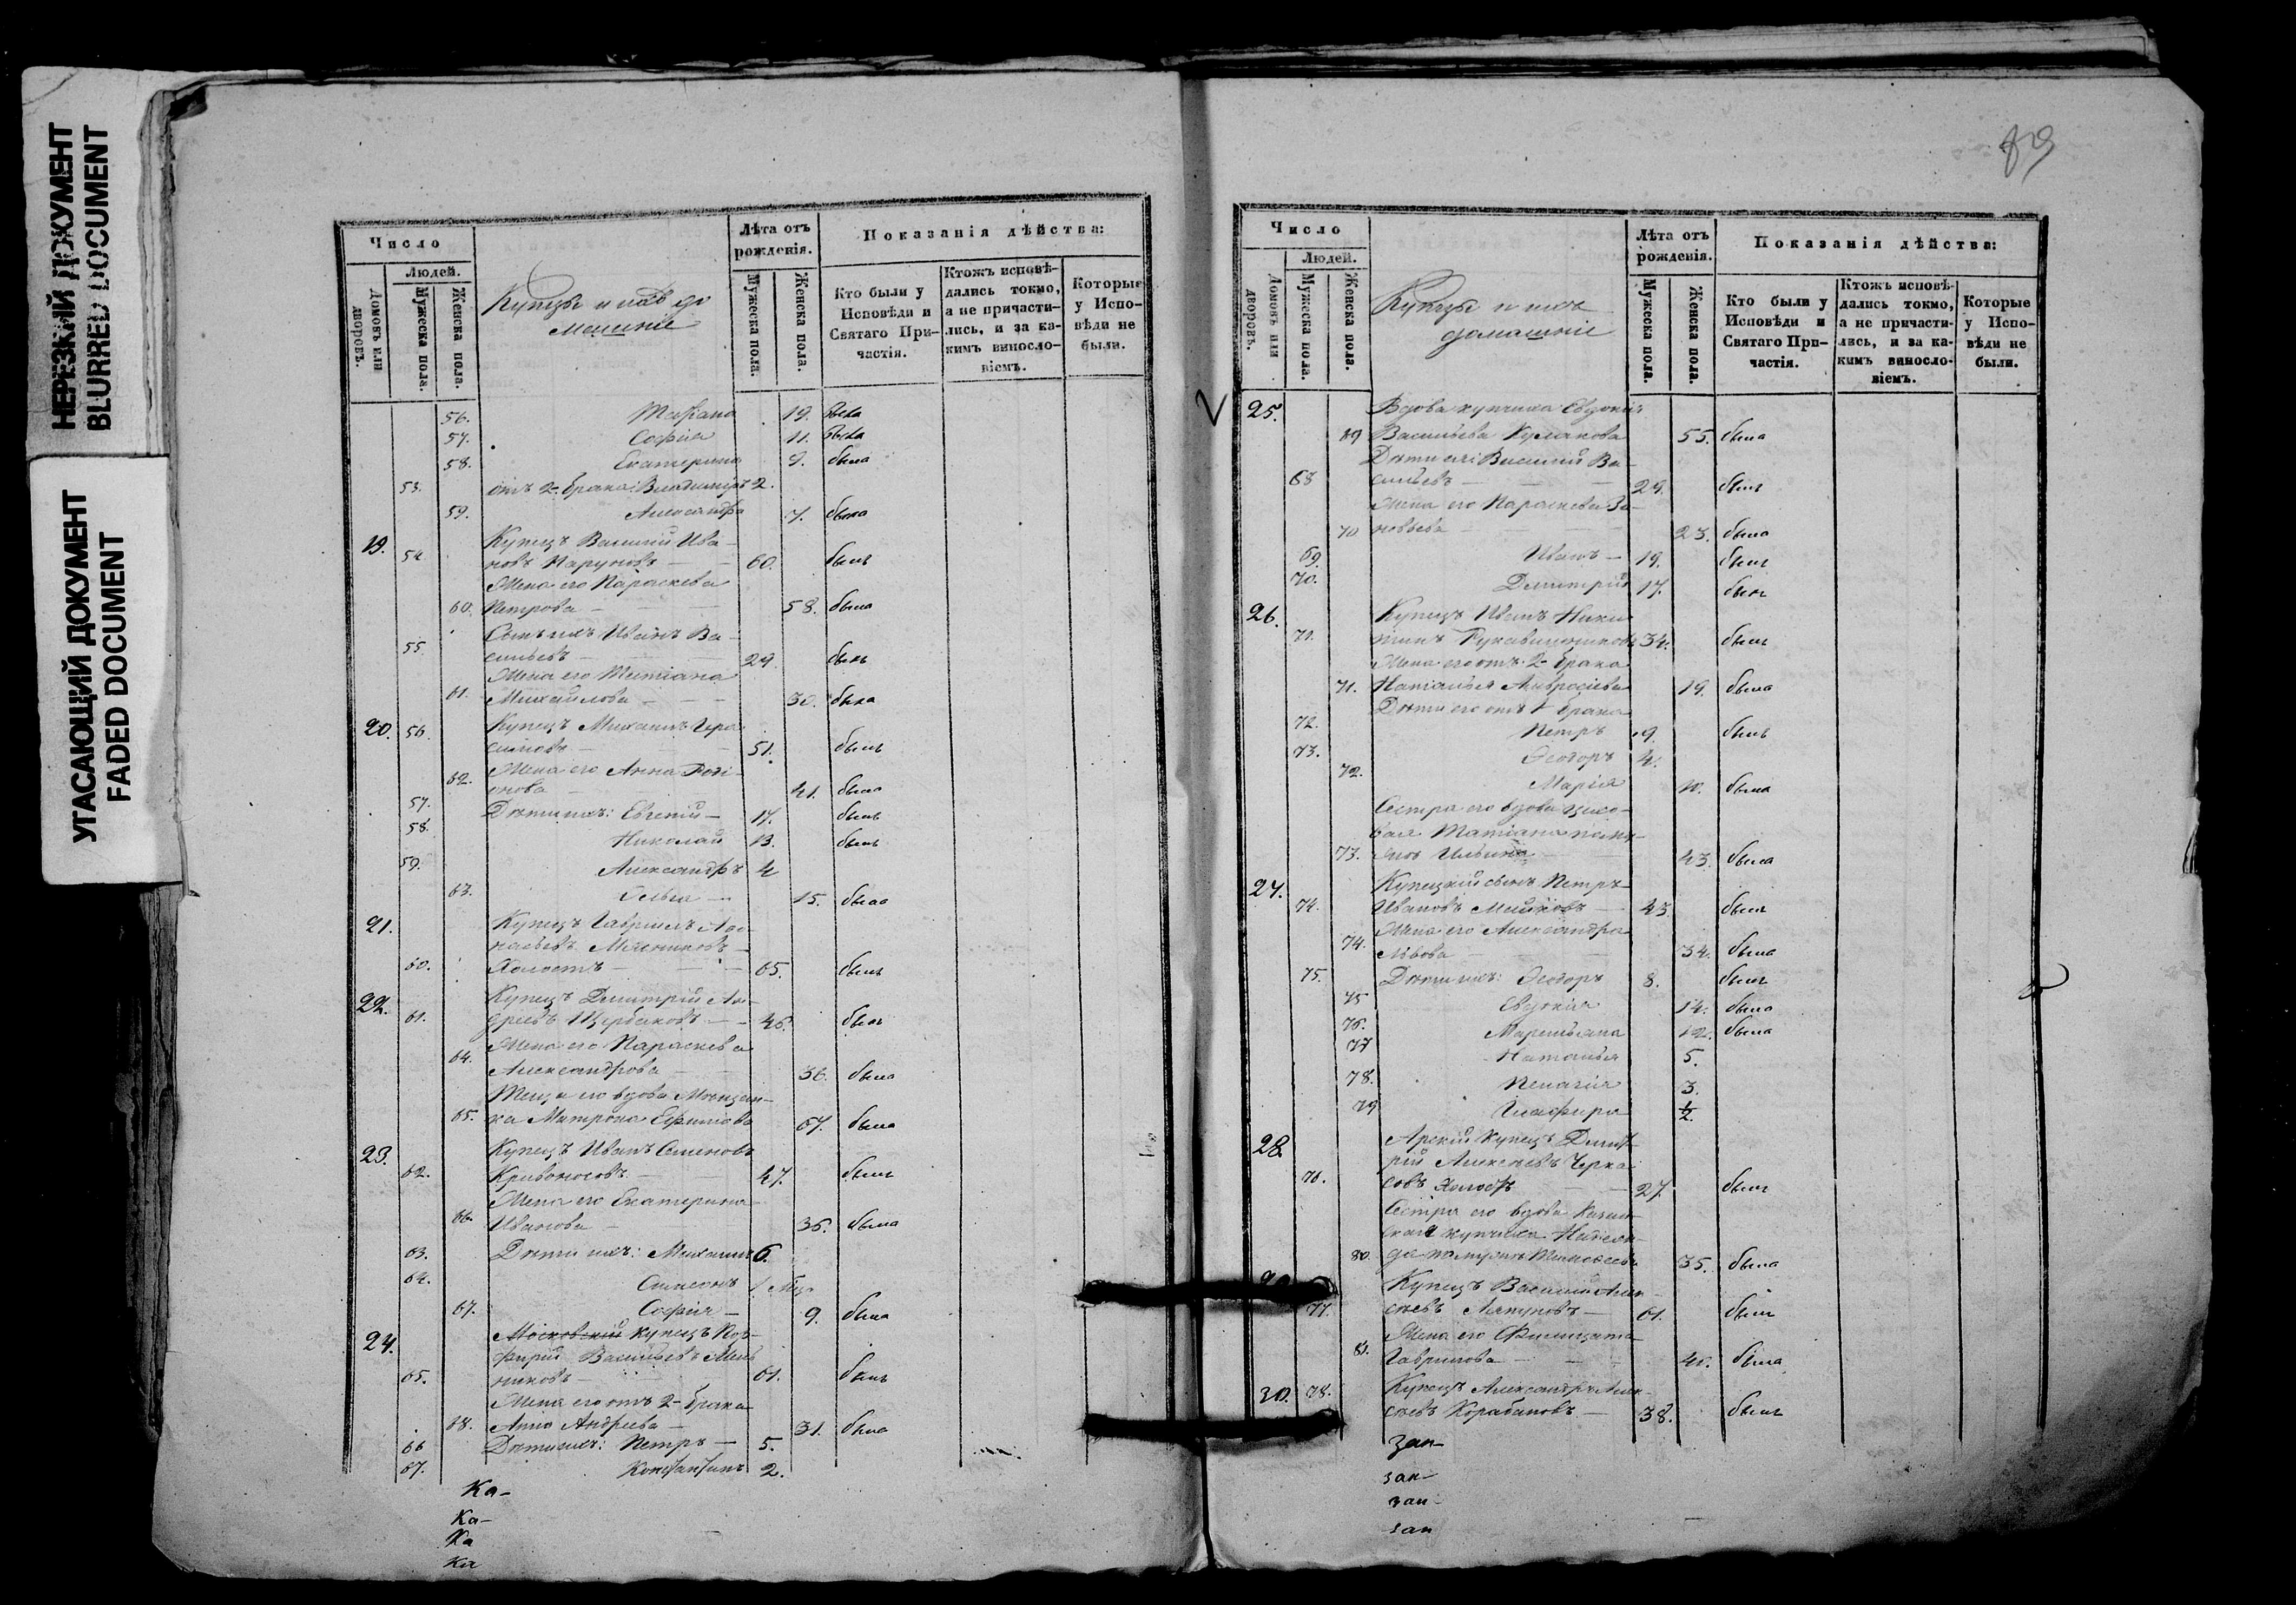 НЕРЕЗКИЙ ДОКУМЕНТ
BLURRED DOCUMENT
УГАСАЮЩИЙ ДОКУМЕНТ
FADED DOCUMENT
Число
Людей.
Домовъ или дворовъ.
Мужеска пола.
Женска пола.
Купцы и ихъ до
машніе
Лѣта отъ рожденія.
Мужеска пола.
Женска пола.
Показанія дѣйства:
Кто были у Исповѣди и Святаго Причастія.
Ктожъ исповѣдались токмо, а не причастились, и за какимъ винословіемъ.
Которые у Исповѣди не были.
56. Татіана 19. была
57. Софія 11. была
58. Екатерина 9. была
53. отъ 2. брака: Владиміръ 2.
59. Александра 7. была
19. Купецъ Василій Ива-
54. новъ 60. былъ
Жена его Параскева
60. Петрова 58. была
Сынъ ихъ Иванъ Ва-
55. сильевъ 29. былъ
Жена его Татіана
61. Михайлова 30. была
20. 56. Купецъ Михаилъ Гера
симовъ 51. былъ
62. Жена его Анна Роді-
онова 41. была
57. Дѣти ихъ: Евгеній 17. былъ
58. Николай 13. былъ
59. Александръ 4
63. Ольга 15. была
21. Купецъ Гавріилъ Аѳо-
насьевъ Мясниковъ
60. Холостъ 65. былъ
22. Купецъ Дмитрій Ан-
61. дреевъ Щербаковъ 46. былъ
64. Жена его Параскева
Александрова 36. была
Теща его вдова Мѣщан-
65. ка Матрона Ефимова 67. была
23. Купецъ Иванъ Семеновъ
62. Кривоносовъ 47. былъ
Жена его Екатерина
66. Иванова 36. была
63. Дѣти ихъ: Михаилъ 6.
64. Симеонъ 1 Мѣс.
67. Софія 9. была
24. Московскій купецъ Пор-
фирій Васильевъ
65. никовъ 61. былъ
Жена его отъ 2 брака
68. Анна Андреева 31. была
66 Дѣти ихъ: Петръ 5.
67. Константинъ 2.
Ка-
Ка-
Ка
Ка
89
Число
Людей.
Домовъ или дворовъ.
Мужеска пола.
Женска пола.
Купцы и ихъ
домашніе
Лѣта отъ рожденія.
Мужеска пола.
Женска пола.
Показанія дѣйства:
Кто были у Исповѣди и Святаго Причастія.
Ктожъ исповѣдались токмо, а не причастились, и за какимъ винословіемъ.
Которые у Исповѣди не были.
25. Вдова купчиха Евдокія
69 Васильева 55. была
Дѣти ея: Василій Ва-
68 сильевъ 29. былъ
Жена его Параскева Зи-
70 новьева 23. была
69. Иванъ 19. былъ
70. Димитрій 17. былъ
26. Купецъ Иванъ Ники
71. тинъ Рукавишниковъ 34. былъ
Жена его отъ 2 брака
71. Наталья Амвросіева 19. была
Дѣти его отъ 1 брака
72. Петръ 9. былъ
73. Ѳеодоръ 4.
72. Марія 10. была
Сестра его вдова
Татіана
73. 43. была
27. Купецкій сынъ Петръ
74. Ивановъ 43 былъ
Жена его Александра
74. Львова 34. была
75. Дѣти ихъ: Ѳеодоръ 8. былъ
75 Евдокія 14. была
76. 12. была
77 Наталья 5.
78. Пелагія 3.
79 Глафира 1/2.
28. Арскій купецъ Дмит-
рій Алексѣевъ Черка
76. совъ Холостъ 27. былъ
Сестра его вдова Казан-
ская купчиха
80. 35. была
Купецъ Василій Алек-
77. сѣевъ Ляпуновъ 61. былъ
Жена его Филицата
81. Гаврилова 40. была
30. 78. Купецъ Александръ Алек-
сѣевъ Карабановъ 38. былъ
зан-
зан-
зан-
зан